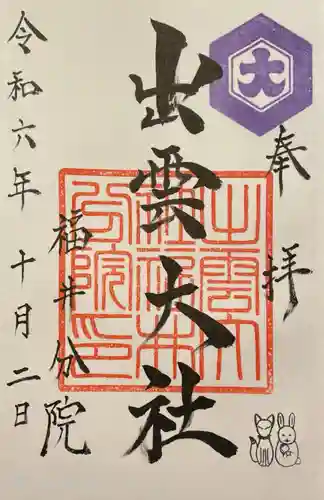 奉拝
大
出雲大社
出雲大
社福井
分院印
福井分院
令和六年 十月二日